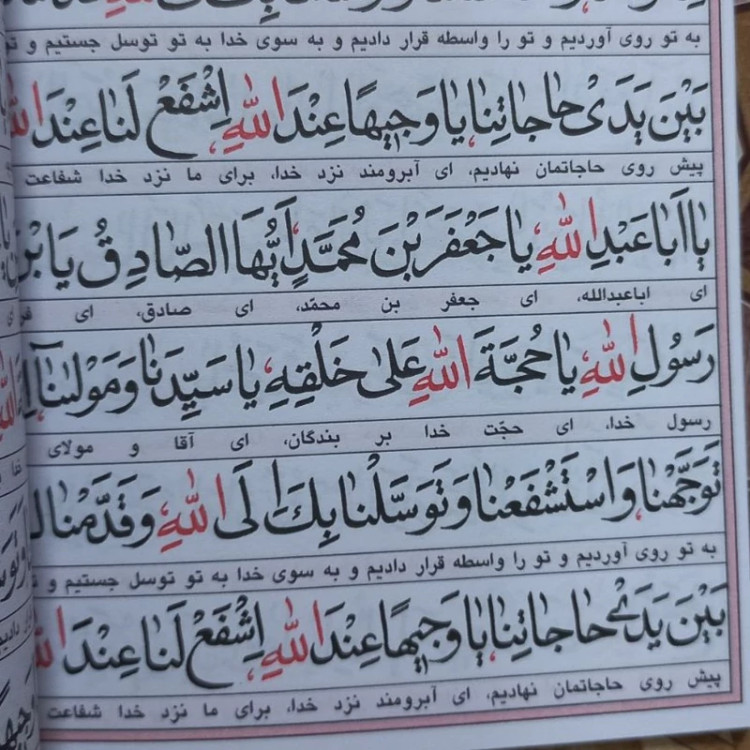 به تو روی آوردیم و تو را واسطه قرار دادیم و به سوی خدا به تو توسل جستیم و تو
بَيْنَ يَدَىْ حاجاتِنا يا وَجيهًا عِنْدَ اللهِ، اِشْفَعْ لَنا عِنْدَ الله
پیش روی حاجاتمان نهادیم، ای آبرومند نزد خدا، برای ما نزد خدا شفاعت
يا اَبا عَبْدِ اللهِ، يا جَعْفَرَ بْنَ مُحَمَّدٍ، اَيُّهَا الصّادِقُ يَا بْنَ
ای اباعبدالله، ای جعفر بن محمّد، ای صادق، ای
رَسُولِ اللهِ، يا حُجَّةَ اللهِ عَلىٰ خَلْقِهِ، يا سَيِّدَنا وَمَوْلٰينا
رسول خدا، ای حجّت خدا بر بندگان، ای آقا و مولای
تَوَجَّهْنا وَاسْتَشْفَعْنا وَتَوَسَّلْنا بِكَ اِلَى اللهِ، وَقَدَّمْنا
به تو روی آوردیم و تو را واسطه قرار دادیم و به سوی خدا به تو توسل جستیم و
بَيْنَ يَدَىْ حاجاتِنا، يا وَجيهًا عِنْدَ اللهِ، اِشْفَعْ لَنا عِنْدَ الله
پیش روی حاجاتمان نهادیم، ای آبرومند نزد خدا، برای ما نزد خدا شفاعت